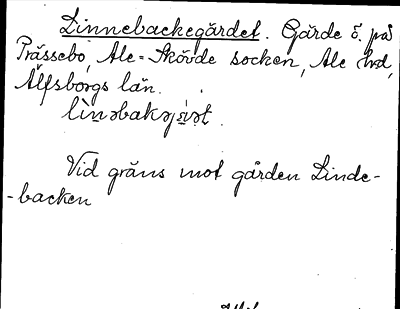 Linnebackegärdet. Gärde ö. på
Prässebo, Ale-Skövde socken, Ale hd,
Älfsborgs län.
Vid gräns mot gården Linde-
-backen